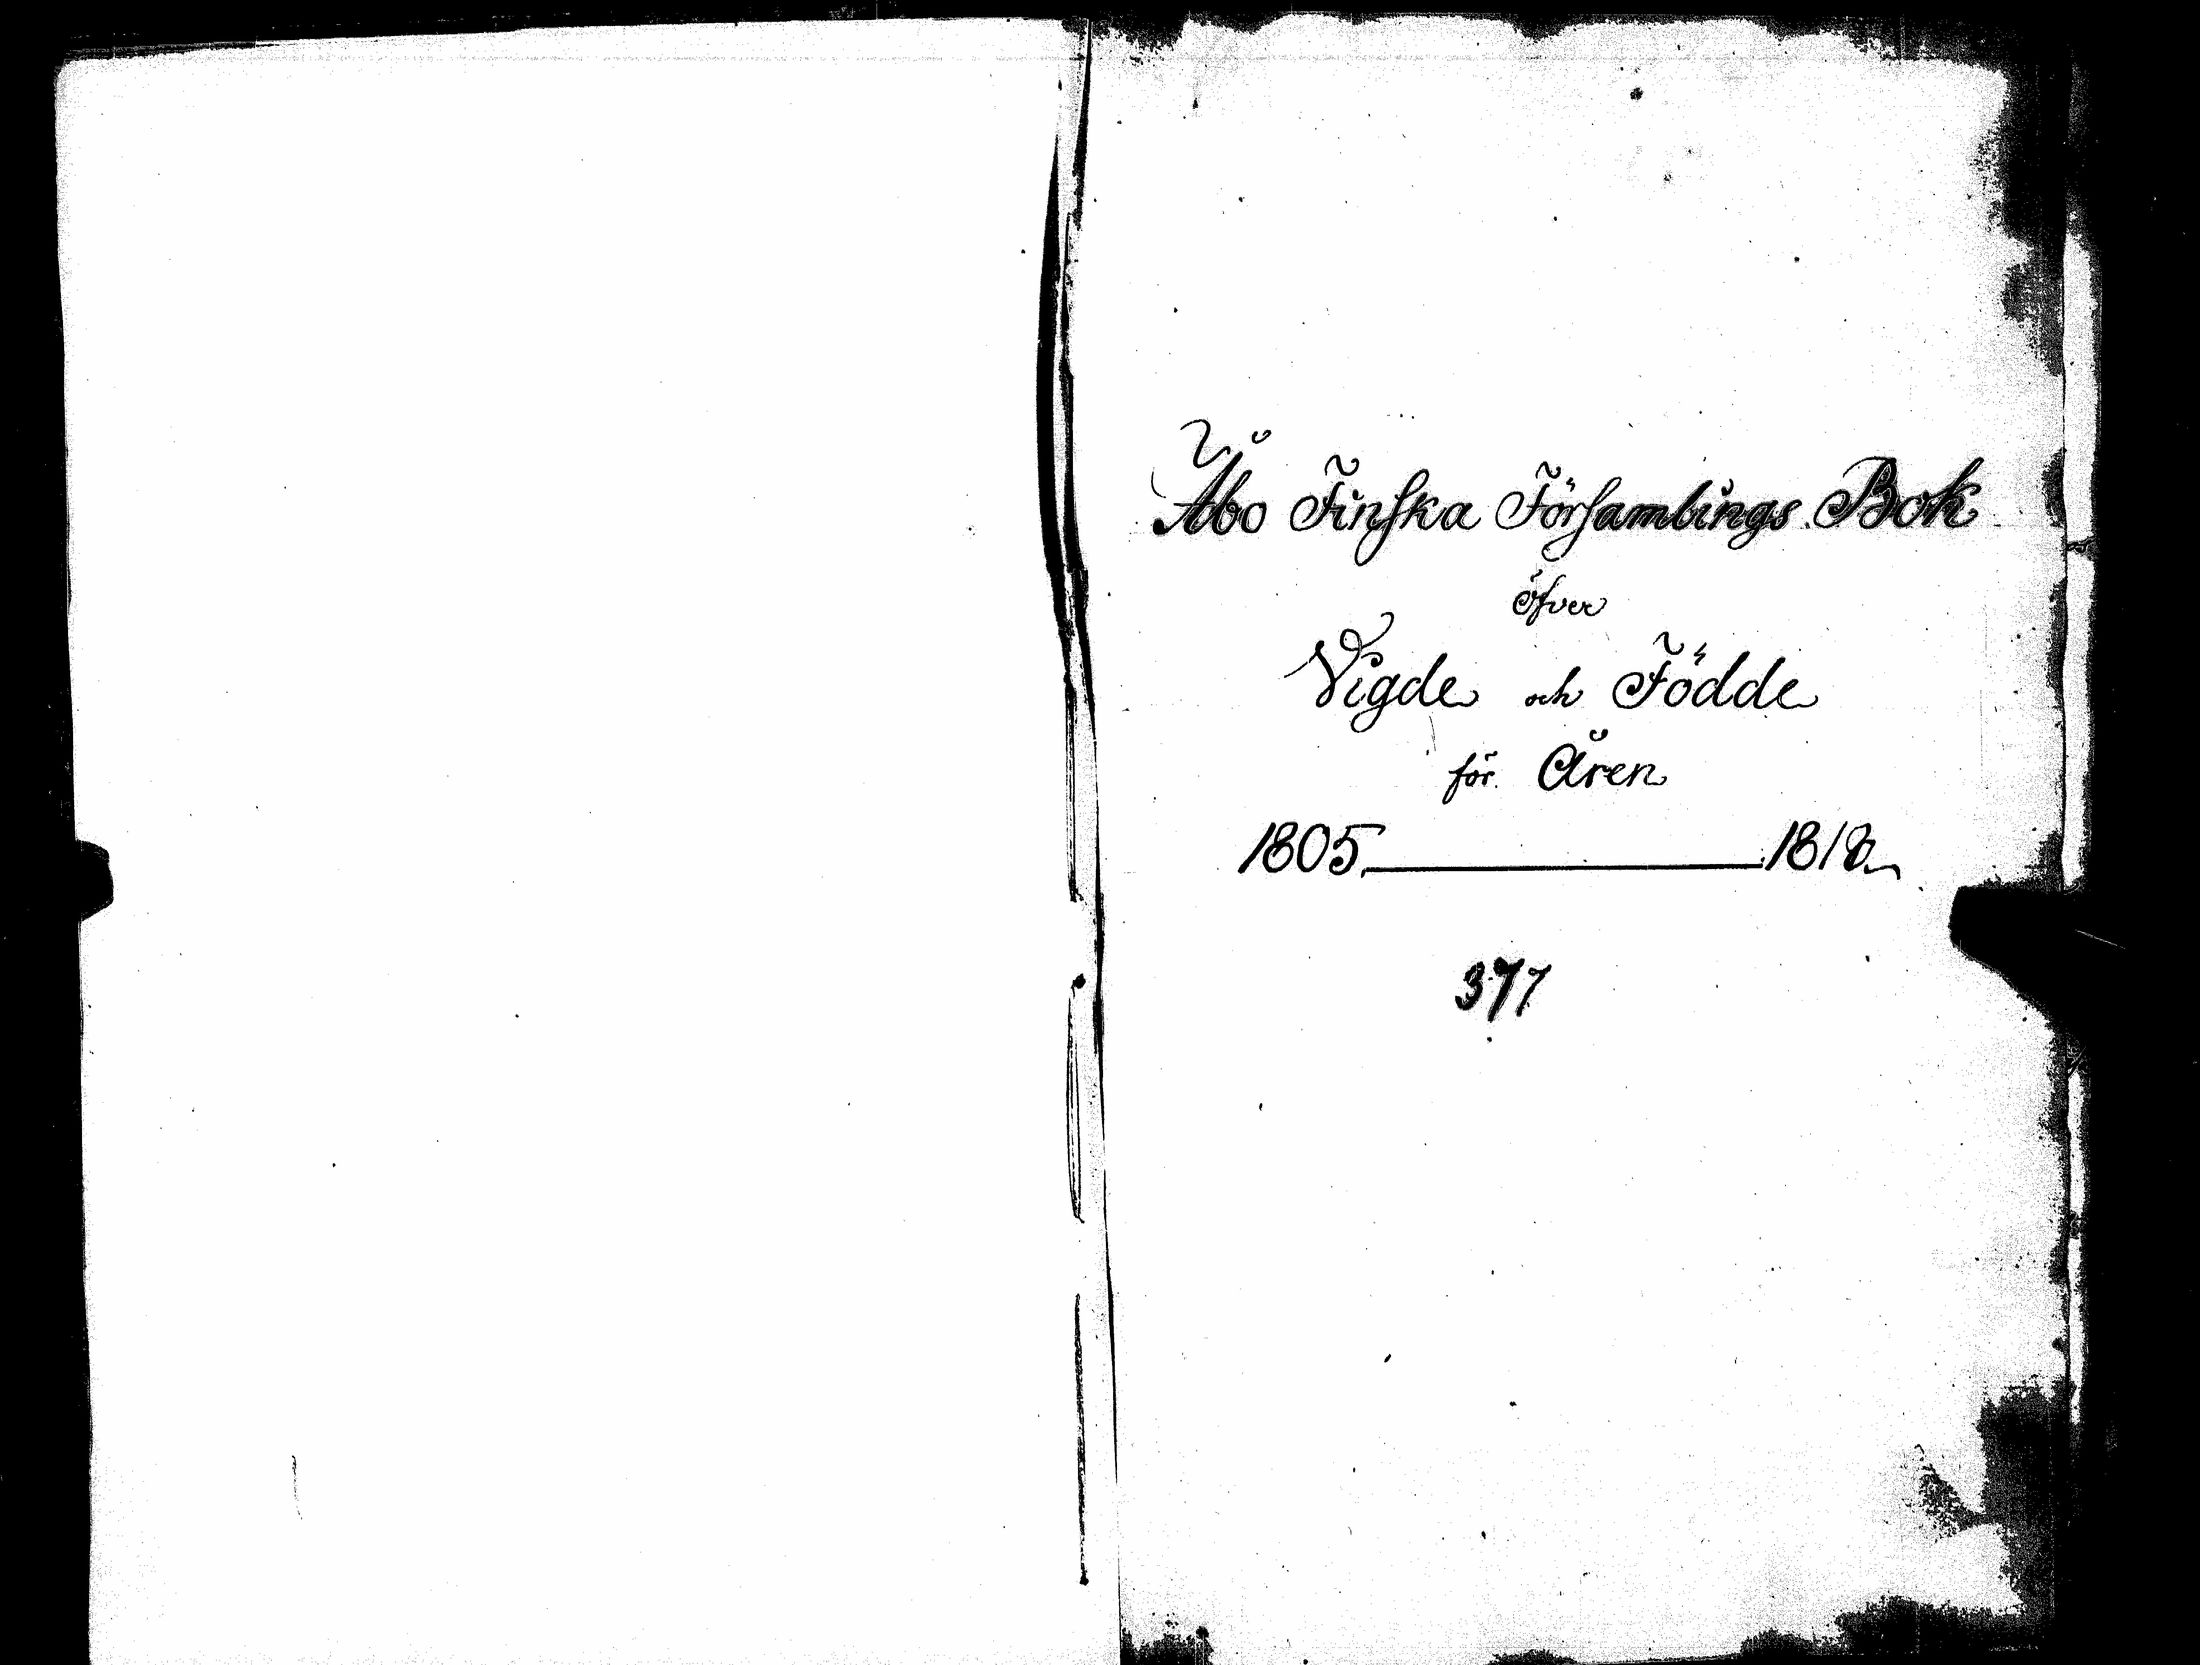 Åbo Finska Församlings Bok
öfver
Vigde och Födde
för Åren
1805 ____ 1818
377